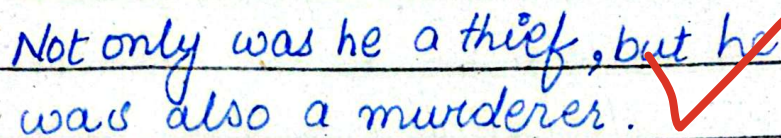 Not only was he a thief, but he
was also a murderer.